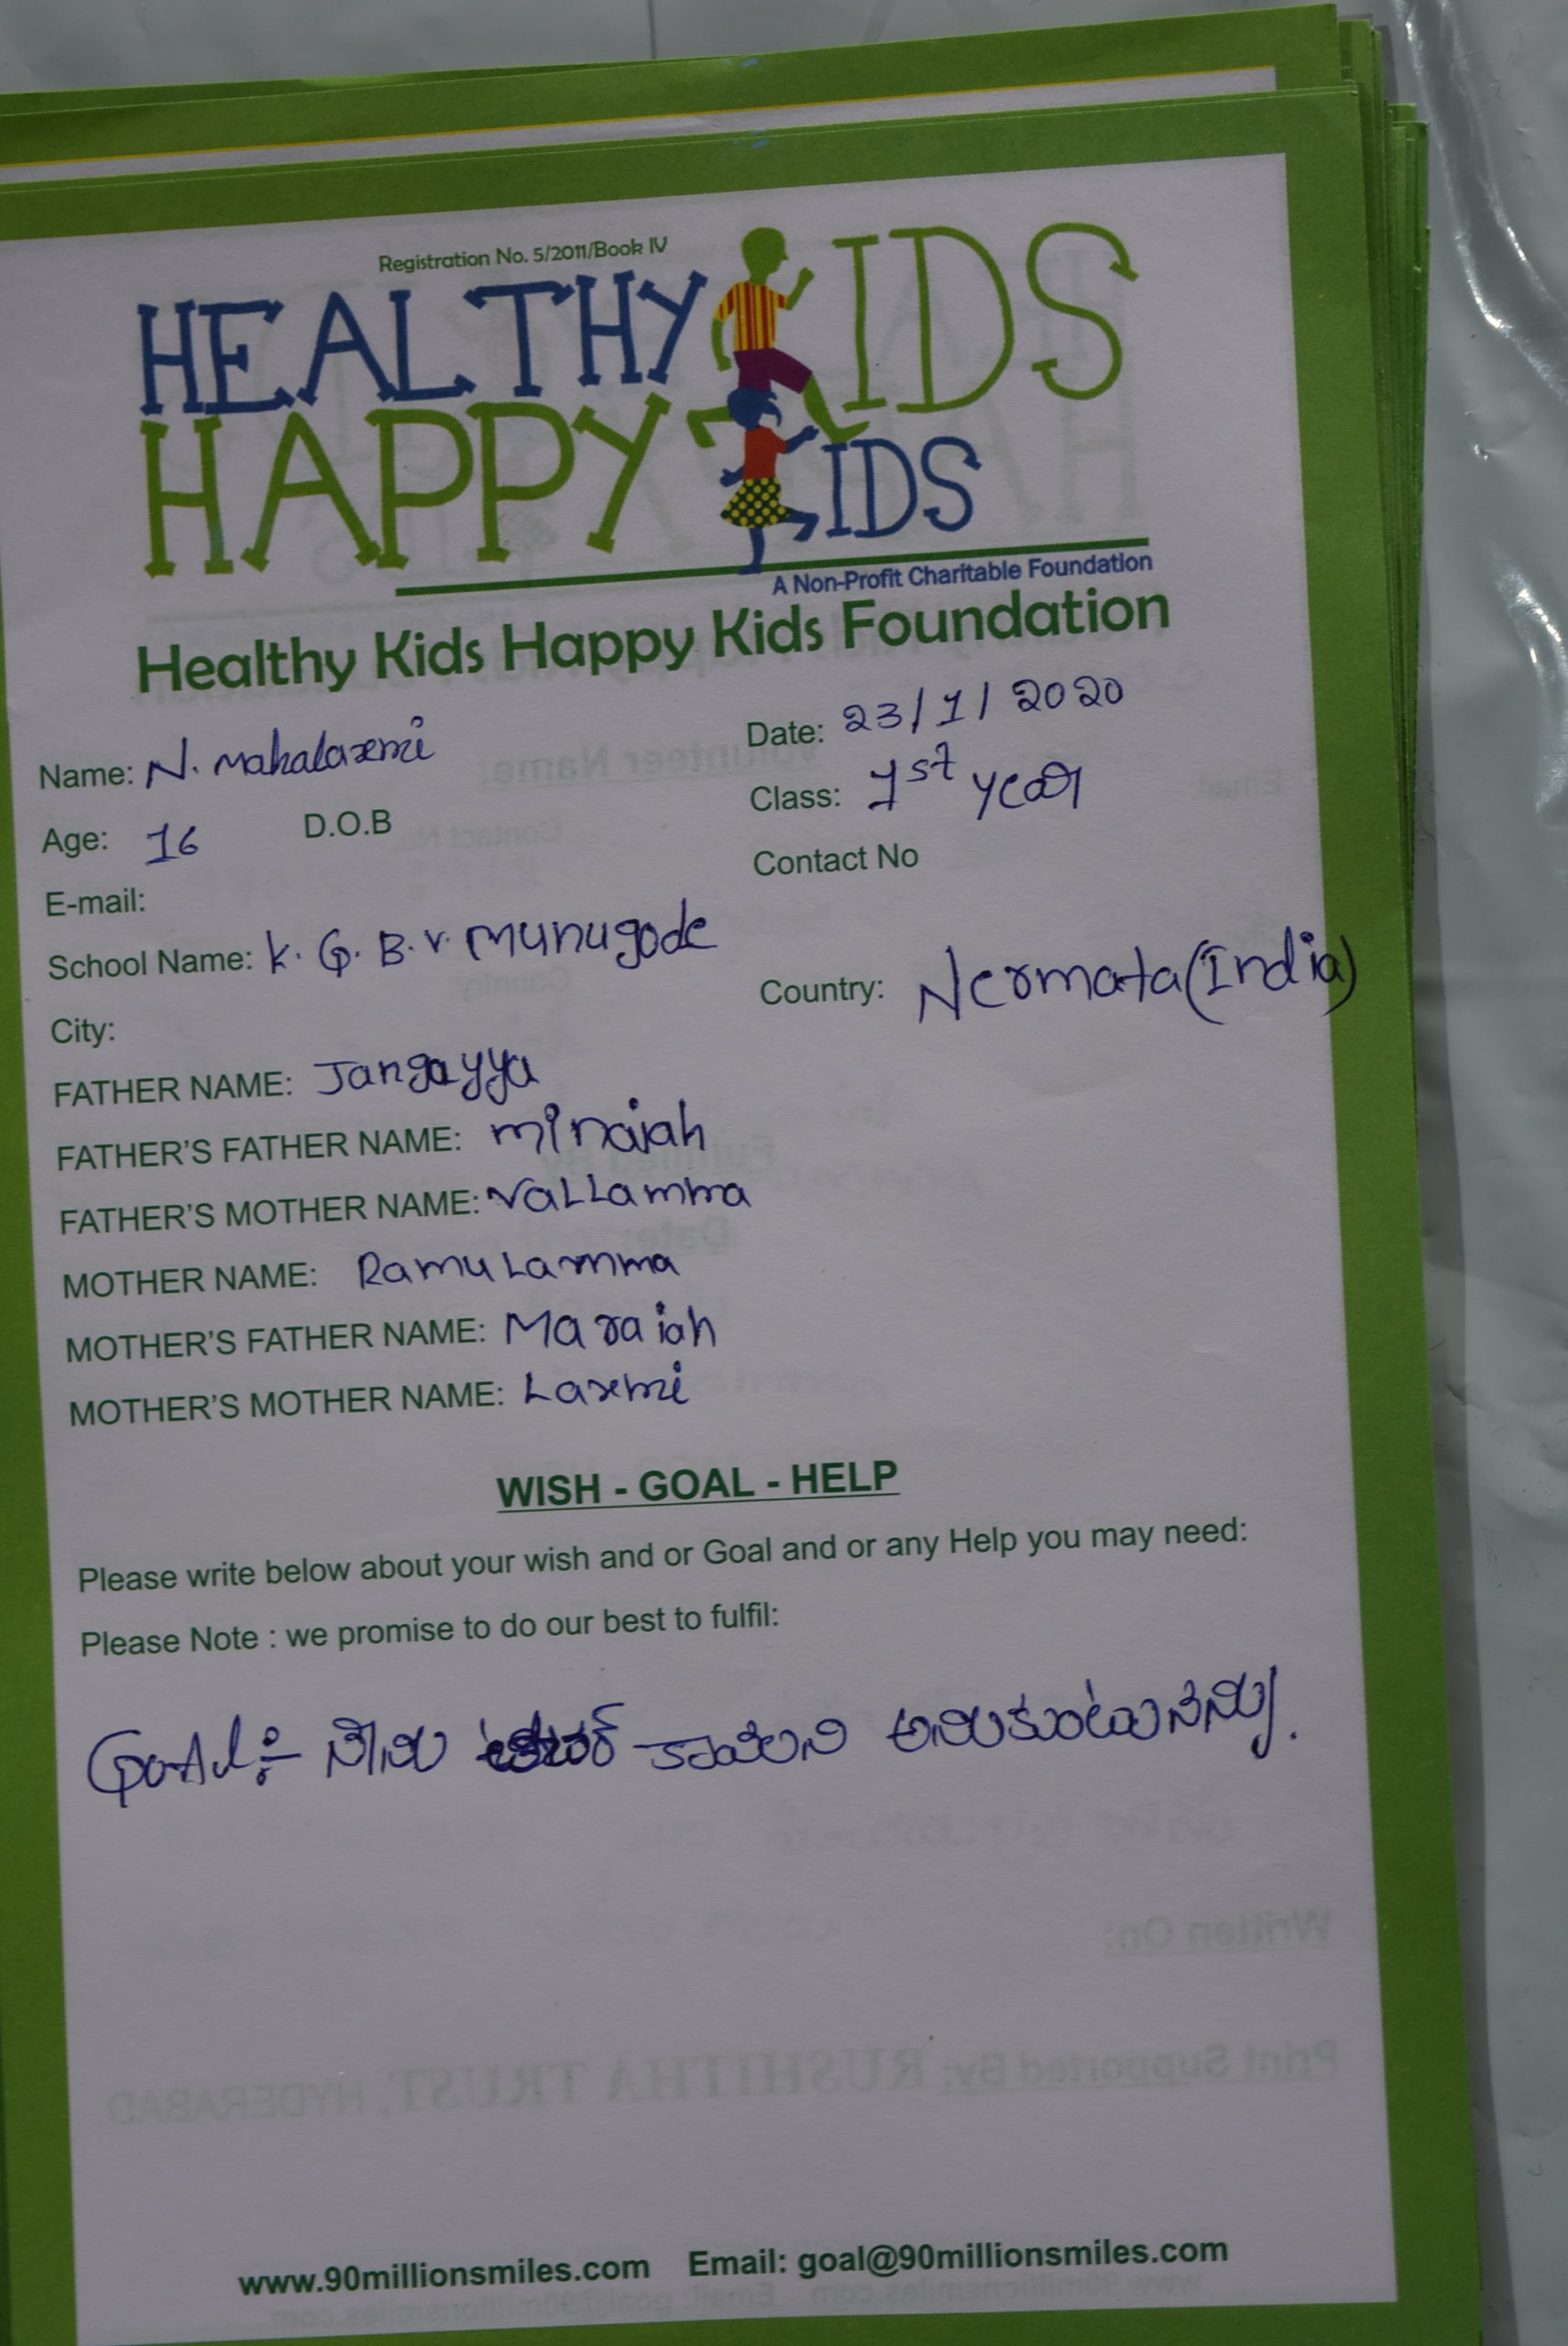 Registration No. 5/2011/Book IV
HEALTHY KIDS
HAPPY KIDS
A Non-Profit Charitable Foundation
Healthy Kids Happy Kids Foundation
Name: N. Mahalaxmi Date: 23/1/2020
Age: 16 D.O.B Class: 1st year
E-mail: Contact No
School Name: K. G. B. V. Munugode
City: Country: Nermata (India)
FATHER NAME: Jangayya
FATHER'S FATHER NAME: minaiah
FATHER'S MOTHER NAME: Vallamma
MOTHER NAME: Ramulamma
MOTHER'S FATHER NAME: Maraiah
MOTHER'S MOTHER NAME: Laxmi
WISH - GOAL - HELP
Please write below about your wish and or Goal and or any Help you may need:
Please Note : we promise to do our best to fulfil:
Goal:- నేను కావాలని అనుకుంటున్నాను.
www.90millionsmiles.com Email: goal@90millionsmiles.com